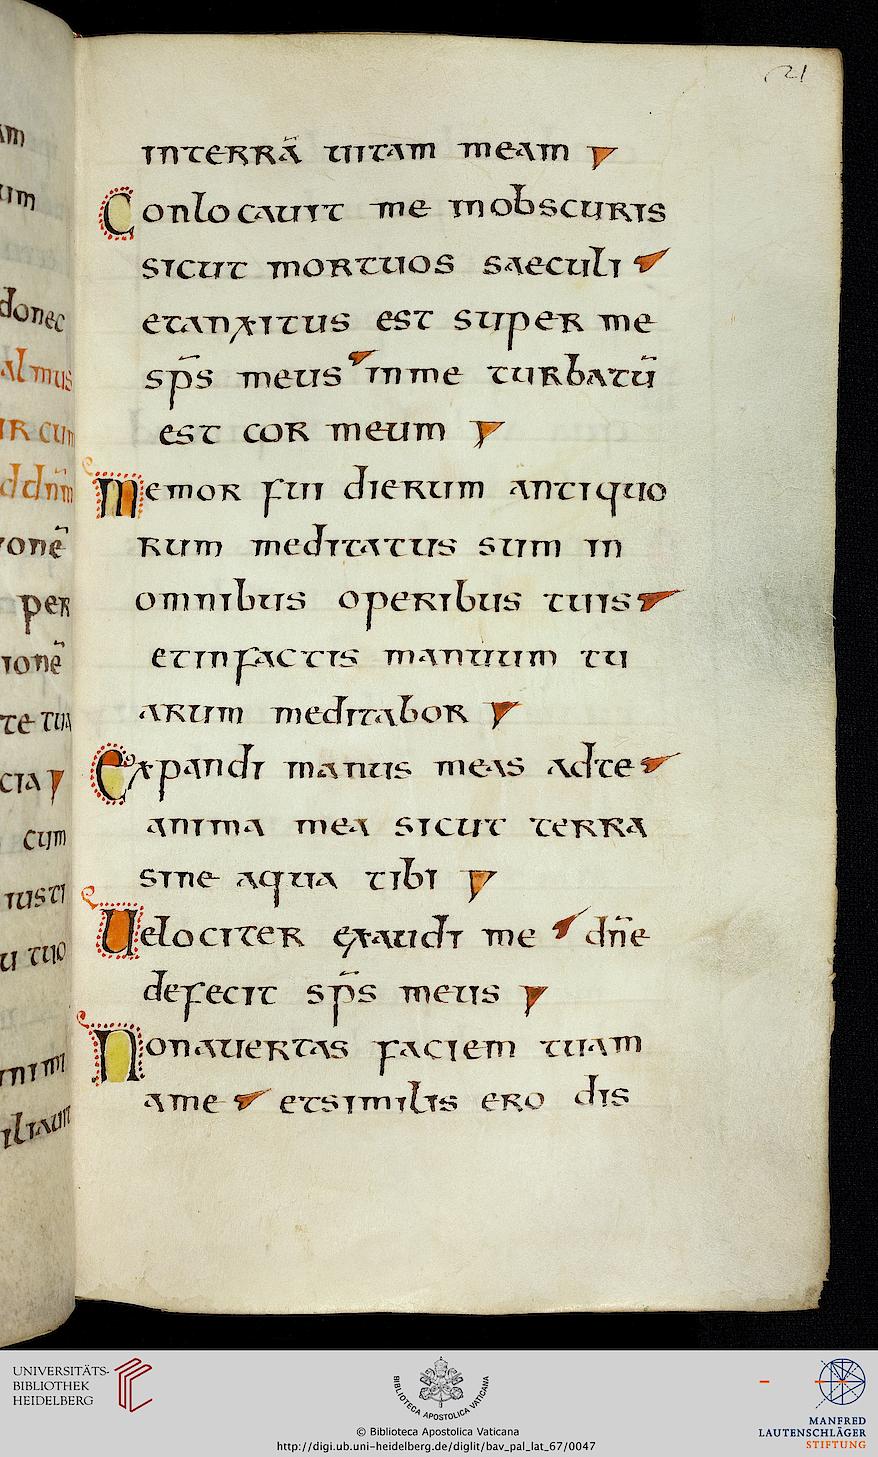 21
interrā uitam meam
Conlocauit me inobscuris
sicut mortuos saeculi
etanxitus est super me
sp̄s meus inme turbatū
est cor meum
Memor fui dierum antiquo
rum meditatus sum in
omnibus operibus tuis
etinfactis manuum tu
arum meditabor
Expandi manus meas adte
anima mea sicut terra
sine aqua tibi
Uelociter exaudi me dn̄e
defecit sp̄s meus
Nonauertas faciem tuam
ame etsimilis ero dis
um
donec
almus
ir cum
ddnm̄
ionē
per
ionē
te tua
cta
cum
iusti
u tuo
UNIVERSITÄTS-
BIBLIOTHEK
HEIDELBERG
BIBLIOTECA APOSTOLICA VATICANA
© Biblioteca Apostolica Vaticana
http://digi.ub.uni-heidelberg.de/diglit/bav_pal_lat_67/0047
MANFRED
LAUTENSCHLÄGER
STIFTUNG